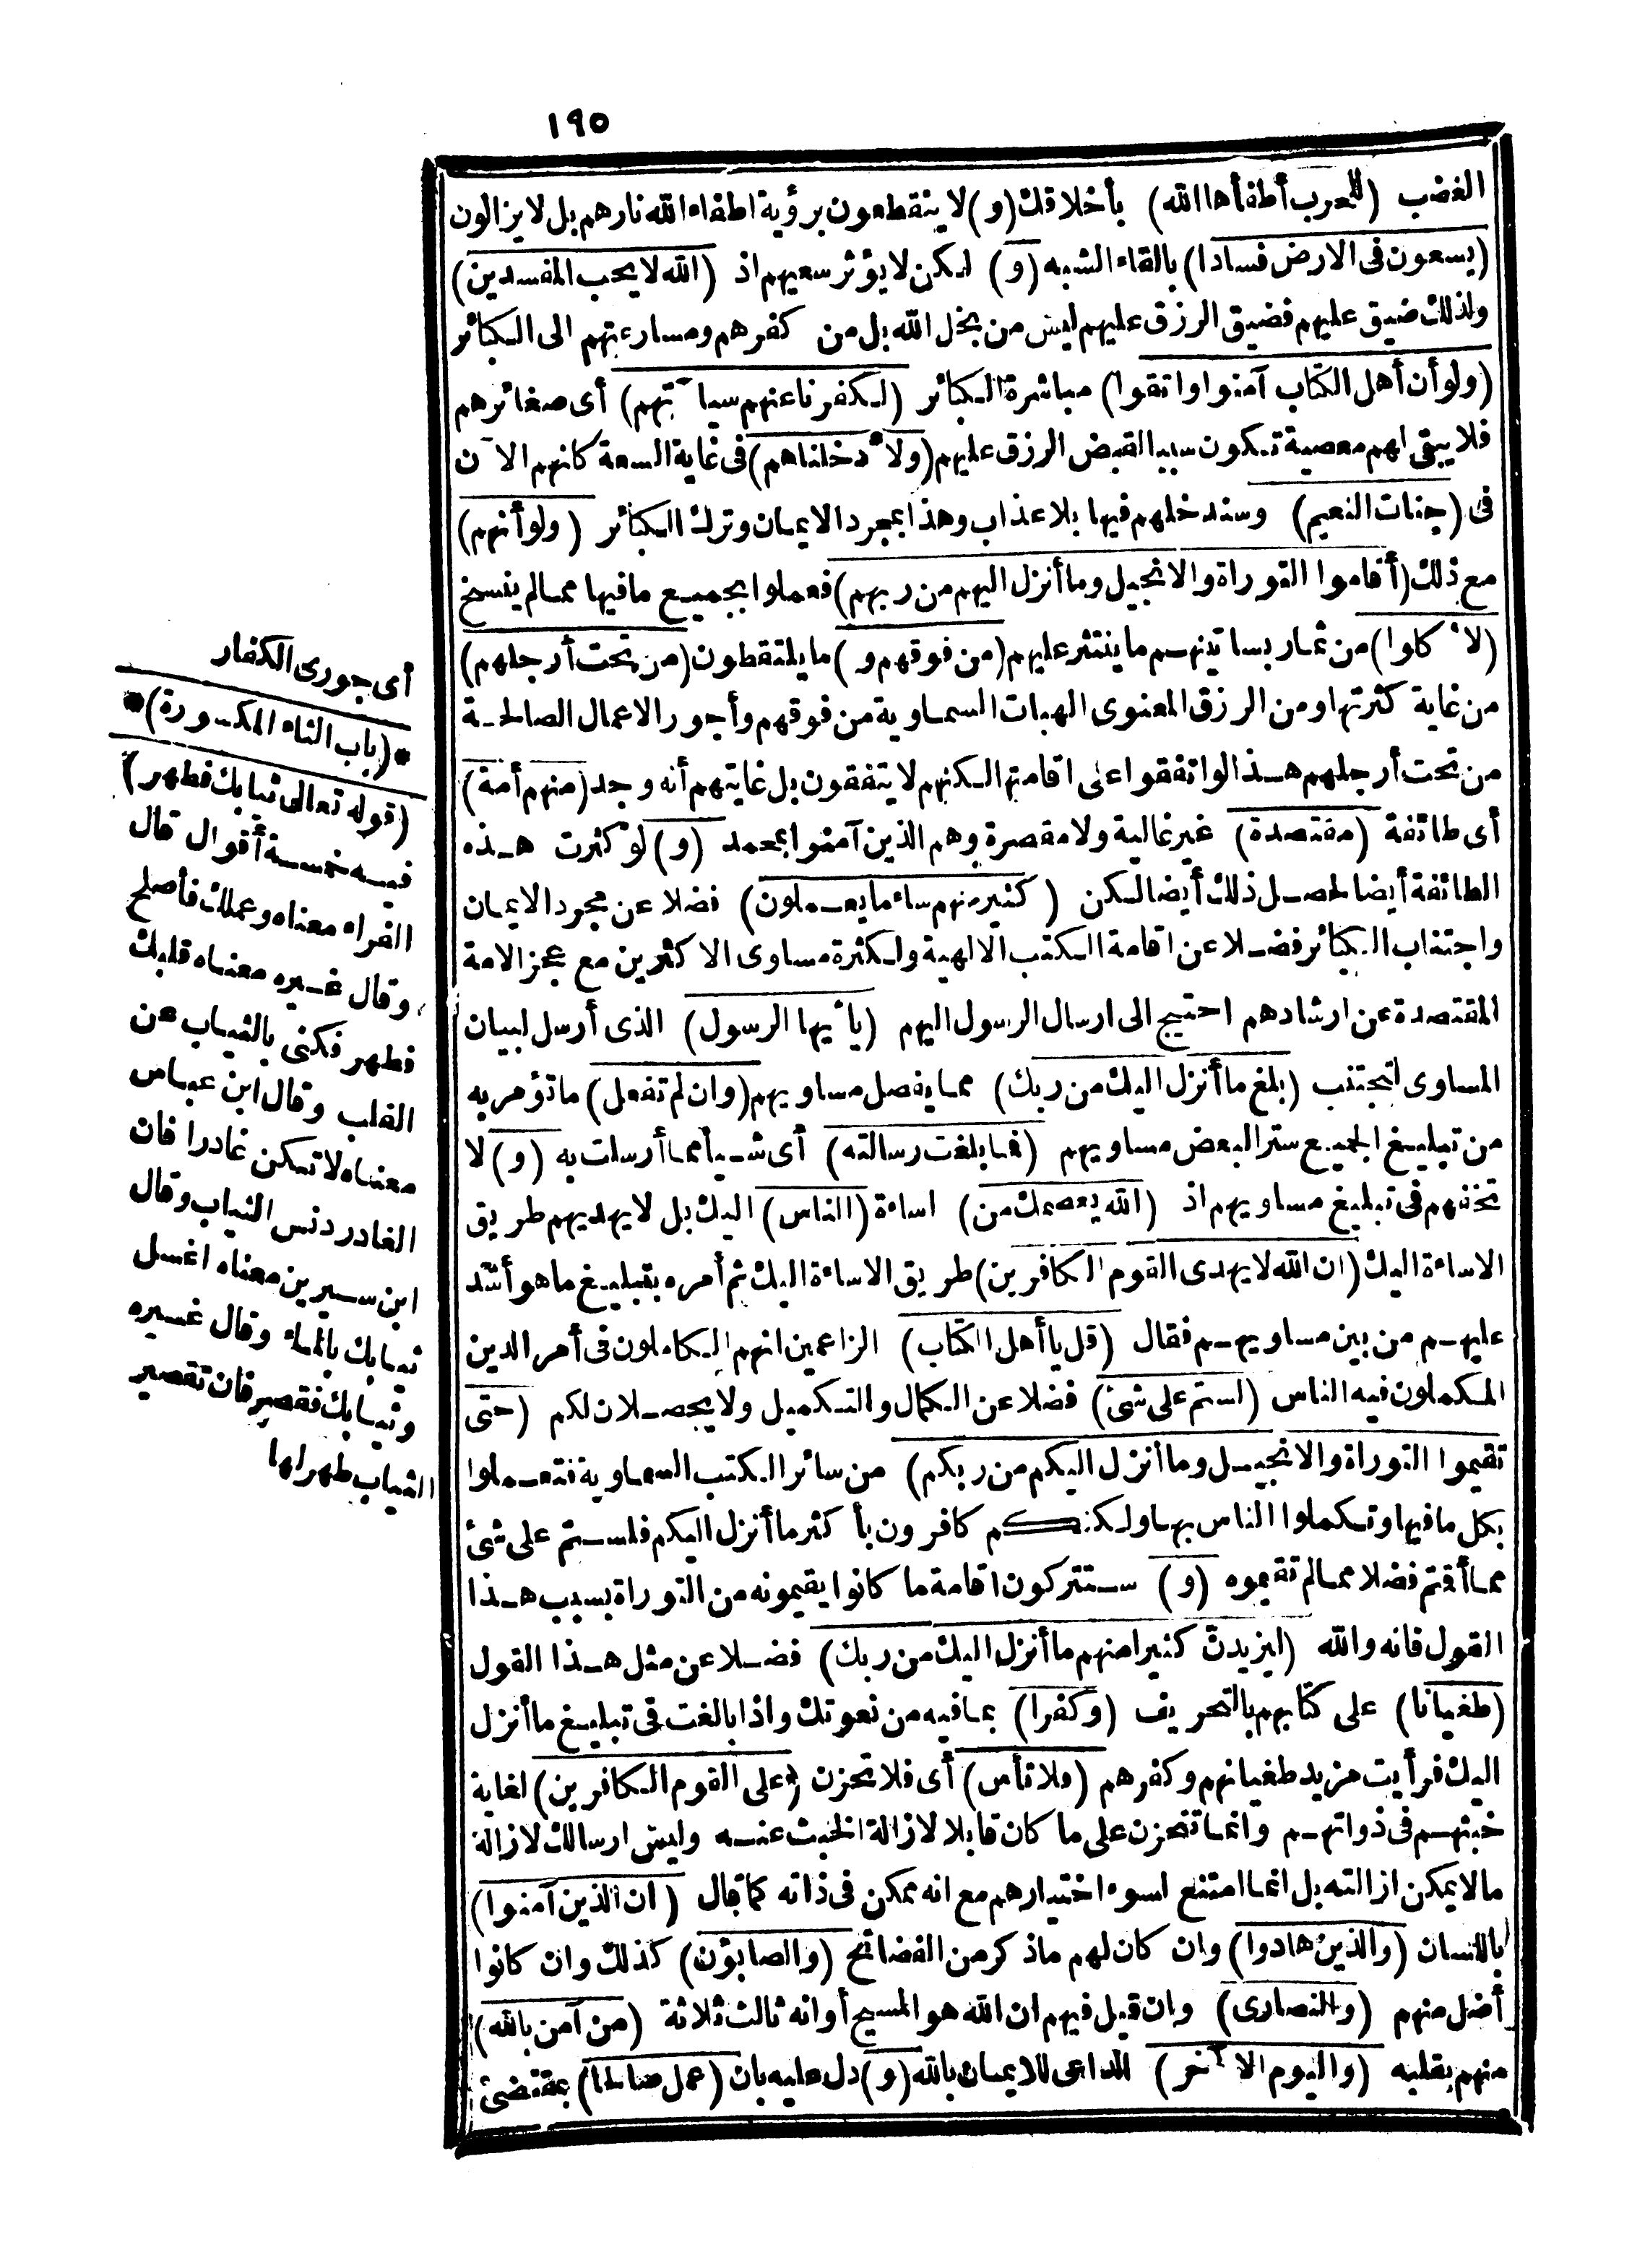 ١٩٥
الغضب (للحرب أطفأها الله) بأخلاقك (و) لا ينقطعون برؤية اطفاء الله نارهم بل لا يزالون
(يسعون فى الارض فسادا) بالقاء الشبه (و) لكن لا يؤثر سعيهم اذ (الله لا يحب المفسدين)
ولذلك ضيق عليهم فضيق الرزق عليهم ليس من بخل الله بل من كفرهم ومسارعتهم الى الكبائر
(ولو أن أهل الكتاب آمنوا واتقوا) مباشرة الكبائر (لكفرنا عنهم سيآتهم) أى صغائرهم
فلا يبقى لهم معصية تكون سببا لقبض الرزق عليهم (ولأدخلناهم) فى غاية السعة كانهم الآن
فى (جنات النعيم) وسندخلهم فيها بلا عذاب وهذا بمجرد الايمان وترك الكبائر (ولو أنهم)
مع ذلك (أقاموا التوراة والانجيل وما أنزل اليهم من ربهم) فعملوا بجميع ما فيها مما لم ينسخ
(لأكلوا) من ثمار بساتينهم ما ينتثر عليهم (من فوقهم و) ما يلتقطون (من تحت أرجلهم)
من غاية كثرتها ومن الرزق المعنوى الهبات السماوية من فوقهم وأجور الاعمال الصالحة
من تحت أرجلهم هذا لو اتفقوا على اقامتها لكنهم لا يتفقون بل غايتهم أنه وجد (منهم أمة)
أى طائفة (مقتصدة) غير غالية ولا مقصرة وهم الذين آمنوا بمحمد (و) لو كثرت هذه
الطائفة أيضا لحصل ذلك أيضا لكن (كثير منهم ساء ما يعملون) فضلا عن مجرد الايمان
واجتناب الكبائر فضلا عن اقامة الكتب الالهية ولكثرة مساوى الاكثرين مع عجز الامة
المقتصدة عن ارشادهم احتيج الى ارسال الرسول اليهم (يأيها الرسول) الذى أرسل لبيان
المساوى لتجتنب (بلغ ما أنزل اليك من ربك) مما يفصل مساويهم (وان لم تفعل) ما تؤمر به
من تبليغ الجميع ستر البعض مساويهم (فما بلغت رسالته) أى شيأ مما أرسلت به (و) لا
تخفهم فى تبليغ مساويهم اذ (الله يعصمك من) اساءة (الناس) اليك بل لا يهديهم طريق
الاساءة اليك (ان الله لا يهدى القوم الكافرين) طريق الاساءة اليك ثم أمره بتبليغ ما هو أشد
عليهم من بين مساويهم فقال (قل يا أهل الكتاب) الزاعمين انهم الكاملون فى أمر الدين
المكملون فيه الناس (لستم على شئ) فضلا عن الكمال والتكميل ولا يحصلان لكم (حتى
تقيموا التوراة والانجيل وما أنزل اليكم من ربكم) من سائر الكتب السماوية فتعملوا
بكل ما فيها وتكملوا الناس بها ولكنكم كافرون بأكثر ما أنزل اليكم فلستم على شئ
مما أقمتم فضلا مما لم تقيموه (و) ستتركون اقامة ما كانوا يقيمونه من التوراة بسبب هذا
القول فانه والله (ليزيدن كثيرا منهم ما أنزل اليك من ربك) فضلا عن مثل هذا القول
(طغيانا) على كتابهم بالتحريف (وكفرا) بما فيه من نعوتك واذا بالغت فى تبليغ ما أنزل
اليك فرأيت مزيد طغيانهم وكفرهم (فلا تأس) أى فلا تحزن (على القوم الكافرين) لغاية
خبثهم فى ذواتهم وانما تحزن على ما كان قابلا لازالة الخبث عنه وليس ارسالك لازالة
ما لا يمكن ازالته بل انما امتنع لسوء اختيارهم مع انه ممكن فى ذاته كما قال (ان الذين آمنوا)
باللسان (والذين هادوا) وان كان لهم ما ذكر من الفضائح (والصابؤن) كذلك وان كانوا
أضل منهم (والنصارى) وان قيل فيهم ان الله هو المسيح أو انه ثالث ثلاثة (من آمن بالله)
منهم بقلبه (واليوم الآخر) الداعى للايمان بالله (و) دل عليه بان (عمل صالحا) بمقتضى
أى جورى الكفار
*(باب الثاء المكسورة)*
(قوله تعالى ثيابك فطهر)
فيه خمسة أقوال قال
الفراء معناه وعملك فأصلح
وقال غيره معناه قلبك
فطهر فكنى بالثياب عن
القلب وقال ابن عباس
معناه لا تكن غادرا فان
الغادر دنس الثياب وقال
ابن سيرين معناه اغسل
ثيابك بالماء وقال غيره
وثيابك فقصر فان تقصير
الثياب طهر لها